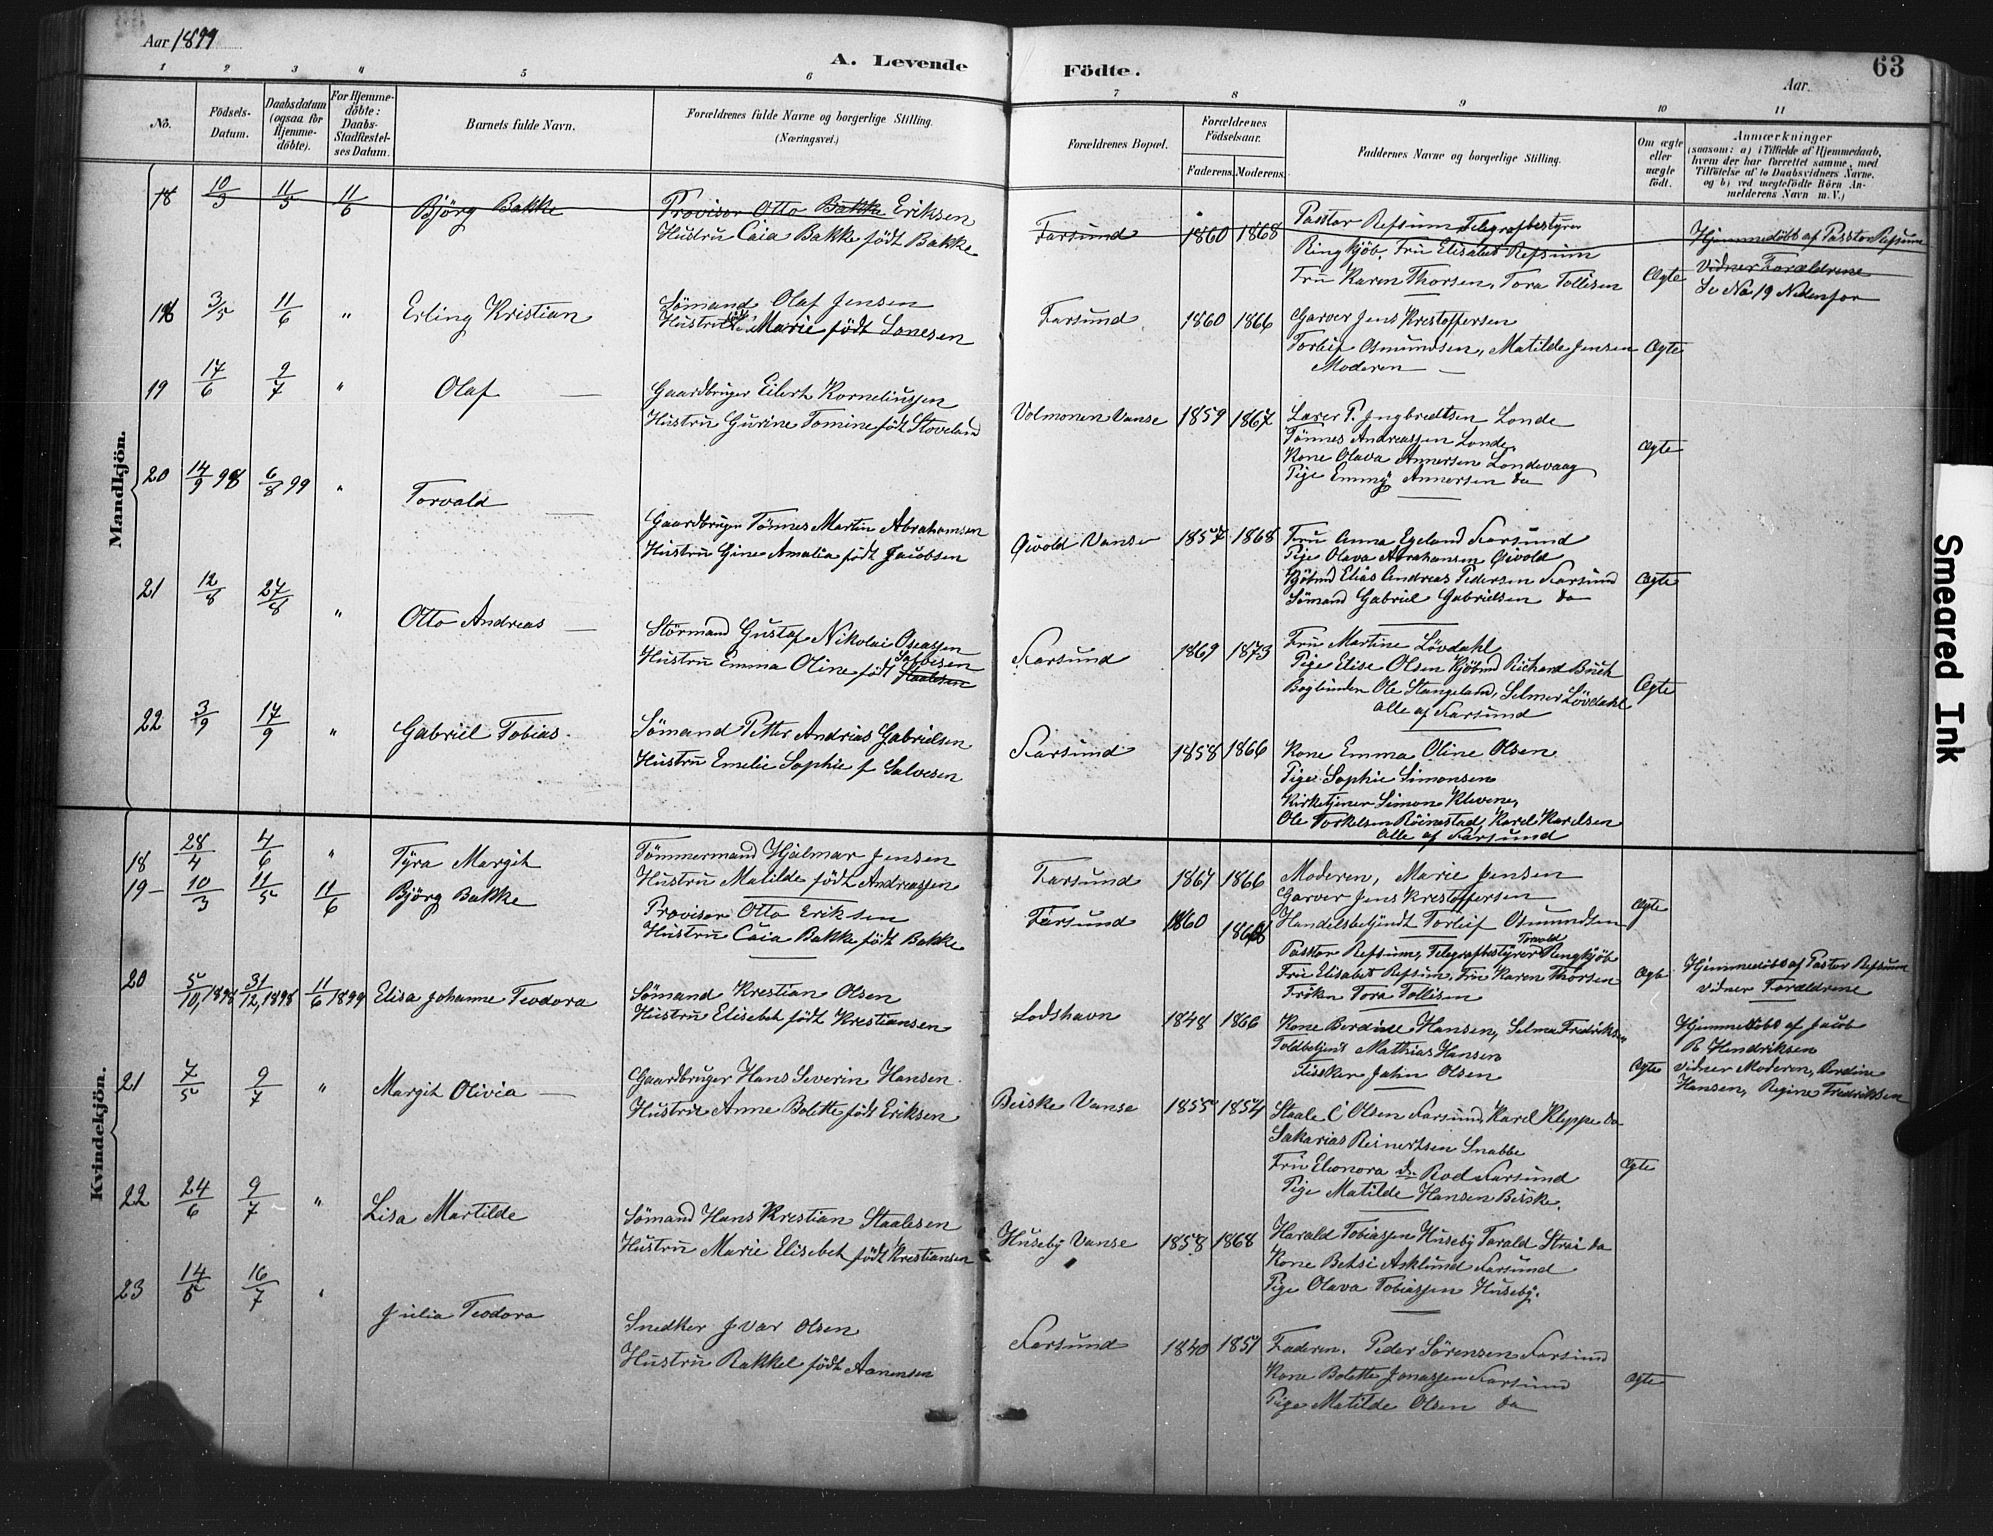 Aar 1899
A. Levende Födte.
63
Aar.
1 2 3 4 5 6 7 8 9 10 11
No.
Födsels-Datum.
Daabsdatum (ogsaa for Hjemme-döbte).
For Hjemme-döbte: Daabs-Stadfæstel-ses Datum.
Barnets fulde Navn.
Forældrenes fulde Navne og borgerlige Stilling.
(Næringsvei.)
Forældrenes Bopæl.
Forældrenes Födselsaar.
Faderens. Moderens.
Faddernes Navne og borgerlige Stilling.
Om ægte eller uægte födt.
Anmærkninger
(saasom: a) i Tilfælde af Hjemmedaab, hvem der har forrettet samme, med Tilföielse af to Daabsvidners Navne, og b) ved uægtefödte Börn An-melderens Navn m. V.)
Mandkjön.
18 10/3 11/5 11/6 Björg Bakke
Provisor Otto Bakke Eriksen
Hustru Caia Bakke født Bakke
Farsund 1860 1868
Passtor Refsum, Telegrafbestyrer
Ringkjöb, Fru Elisabet Refsum
Fru Karen Thorsen, Tora Tollisen
Ægte
Hjemmedöbt af Passtor Refsum
Vidner Forældrene
Se No 19 Nedenfor
18 3/5 11/6 " Erling Kristian
Sömand Olaf Jensen
Hustru Marie født Lanesen
Farsund 1860 1866
Garver Jens Krestoffersen
Torleif Osmundsen, Matilde Jensen
Moderen
Ægte
19 17/6 2/7 " Olaf
Gaardbruger Eilert Korneliussen
Hustru Gurine Tomine født Stoveland
Volmonen Vanse 1859 1867
Lærer P. Jngbredtsen Londe
Tönnes Andreassen Londe,
Kone Olava Annersen Londevaag
Pige Emmy Annersen do
Ægte
20 14/9 98 6/8 99 " Torvald
Gaardbruger Tönnes Martin Abrahamsen
Hustru Gine Amalia født Jacobsen
Qivold Vanse 1857 1868
Fru Anna Egeland Farsund
Pige Olava Abrahamsen Qivold
Kjöbmd Elias Andreas Pedersen Farsund
Sömand Gabriel Gabrielsen do
Ægte
21 12/8 27/8 " Otto Andreas
Störmand Gustaf Nikolai Oseassen
Hustru Emma Oline født Staalesen Salvesen
Farsund 1869 1873
Fru Martine Lövdahl
Pige Elise Olsen Kjöbmd Richard Buch
Bogbinder Ole Stangeland, Selmer Lövdahl
alle af Farsund
Ægte
22 3/9 17/9 " Gabriel Tobias
Sömand Petter Andrias Gabrielsen
Hustru Emelie Sophie f Salvesen
Farsund 1858 1866
Kone Emma Oline Olsen
Pige Sophie Simonsen
Kirketjener Simon Klevene,
Ole Torkelsen Röinestad, Karel Karelsen
alle af Farsund
Kvindekjön.
18 28/4 4/6 " Tyra Margit
Tömmermand Hjalmar Jensen
Hustru Matilde født Andreassen
Farsund 1867 1866
Moderen, Marie Jensen
Garver Jens Krestoffersen
Handelsbetjendt Torleif Osmundsen
Ægte
19 10/3 11/5 11/6 Björg Bakke
Provisor Otto Eriksen
Hustru Caia Bakke født Bakke
Farsund 1860 1868
Pasktor Refsum, Telegrafbestyrer Torvald Ringkjöb
Fru Elisabet Refsum, Fru Karen Thorsen
Fröken Tora Tollisen
Ægte
Hjemmedöbt af Pastor Refsum
vidner Forældrene
20 5/10, 1898 31/12, 1898 11/6 1899 Elisa Johanne Teodora
Sömand Krestian Olsen
Hustru Elisebet født Krestiansen
Lodshavn 1848 1866
Kone Berdine Hansen, Selma Fredriksen
Toldbetjent Mathias Hansen
Fissker Jahn Olsen
Ægte
Hjemmedöbt af Jacob
R Hendriksen
vidner Moderen, Berdine
Hansen, Regine Fredrikssen
21 7/5 9/7 " Margit Olivia
Gaardbruger Hans Severin Hansen
Hustru Anne Bolette født Eriksen
Beiske Vanse 1855 1854
Staale C Olsen Farsund, Karel Kleppe do
Sakarias Reinertsen Snabbe
Fru Eleonora de Rod Farsund
Pige Matilde Hansen Beiske.
Ægte
22 24/6 9/7 " Lisa Martilde
Sömand Hans Krestian Staalesen
Hustru Marie Elisebet født Krestiansen
Huseby Vanse 1858 1868
Harald Tobiassen Huseby Tarald Strai do
Kone Betsi Asklund Farsund
Pige Olava Tobiassen Huseby.
23 14/5 16/7 " Julia Teodora
Snedker Jvar Olsen
Hustru Rakkel født Aanensen
Farsund 1840 1851
Faderen. Peder Sörensen Farsund
Kone Bolette Jonassen Farsund
Pige Matilde Olsen do
Ægte
Smeared Ink